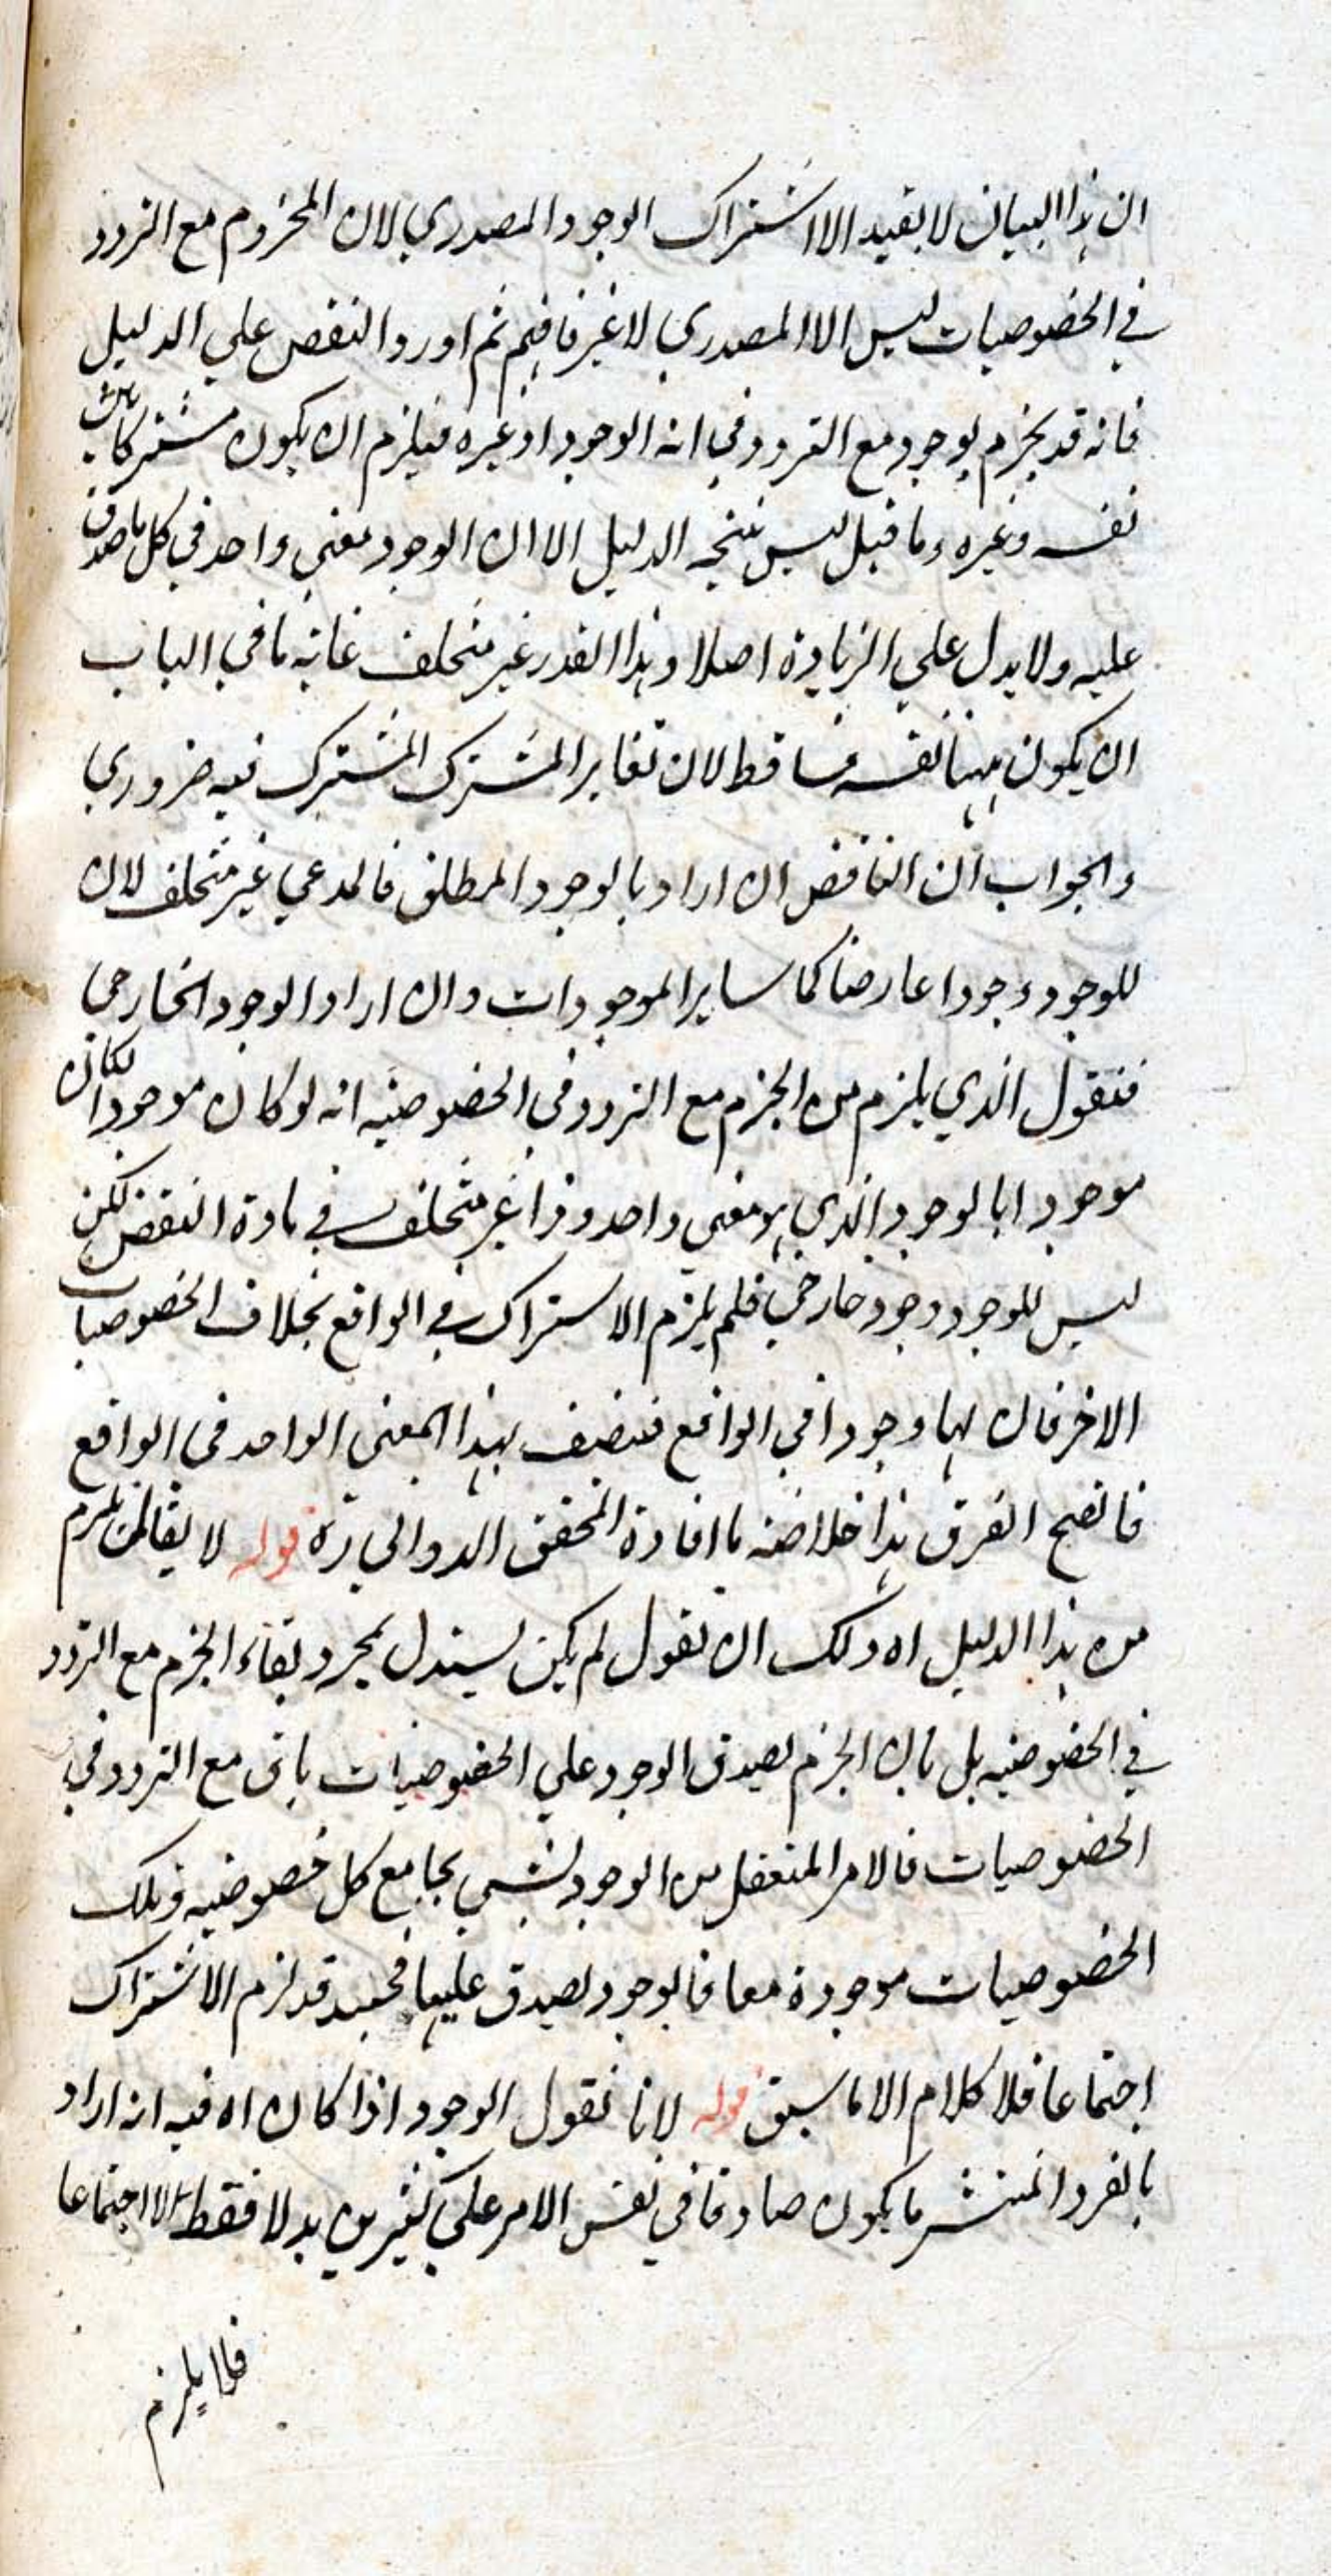 ان هذا البيان لا يفيد الا اشتراك الوجود المصدري لان المجزوم مع التردد
في الخصوصيات ليس الا المصدري لا غير فافهم ثم اورد النقض علي الدليل
فانه قد يجزم بوجود مع التردد في انه الوجود او غيره فيلزم ان يكون مشتركا بين
نفسه وغيره وما قيل ليس نتيجه الدليل الا ان الوجود معني واحد في كل ما صدق
عليه ولا يدل علي الزيادة اصلا وهذا القدر غير متخلف غايته ما في الباب
ان يكون ههنا نفسه فساقط لان تغاير المشترك المشترك فيه ضروري
والجواب ان الناقض ان اراد بالوجود المطلق فالمدعي غير متخلف لان
للوجود وجودا عارضا كما ساير الموجودات وان اراد الوجود الخارجي
فنقول الذي يلزم من الجزم مع التردد في الخصوصيه انه لو كان موجودا لكان
موجودا بالوجود الذي هو معني واحد وذا غير متخلف في مادة النقض لكن
ليس للوجود وجود خارجي فلم يلزم الاشتراك في الواقع بخلاف الخصوصيات
الاخر فان لها وجودا في الواقع فتتصف بهذا المعني الواحد في الواقع
فاتضح الفرق هذا خلاصة ما افاده المحقق الدواني ره قوله لا يقال لم يلزم
من هذا الدليل اه ولك ان تقول لم يكن يستدل بمجرد بقاء الجزم مع التردد
في الخصوصيه بل بان الجزم بصدق الوجود علي الخصوصيات باق مع التردد في
الخصوصيات فالامر المتعقل من الوجود لشيء يجامع كل خصوصيه وتلك
الخصوصيات موجودة معا فالوجود يصدق عليها فحينئذ قد لزم الاشتراك
اجتماعا فلا كلام الا ما سبق قوله لانا نقول الوجود اذا كان اه فيه انه اراد
بالفرد المنتشر ما يكون صادقا في نفس الامر علي كثيرين بدلا فقط لا اجتماعا
فلا يلزم